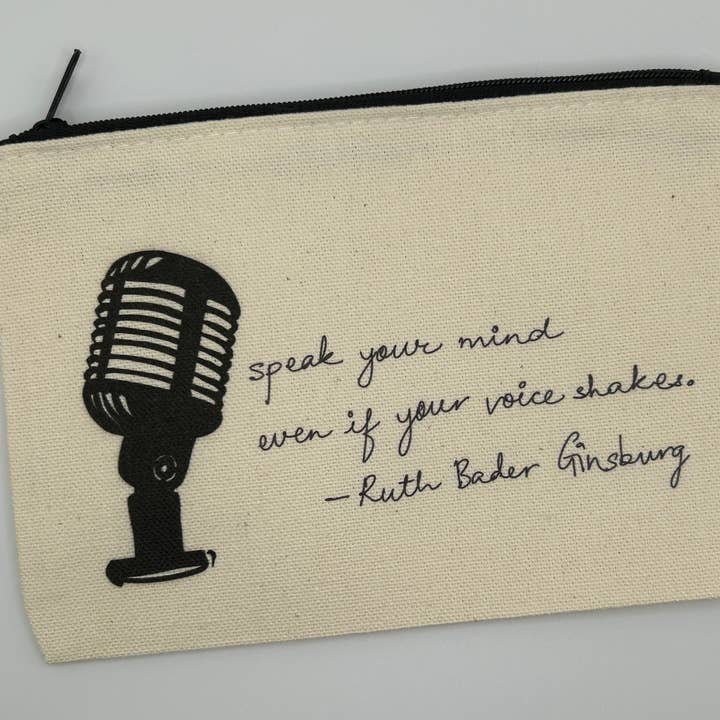 speak your mind
even if your voice shakes.
- Ruth Bader Ginsburg